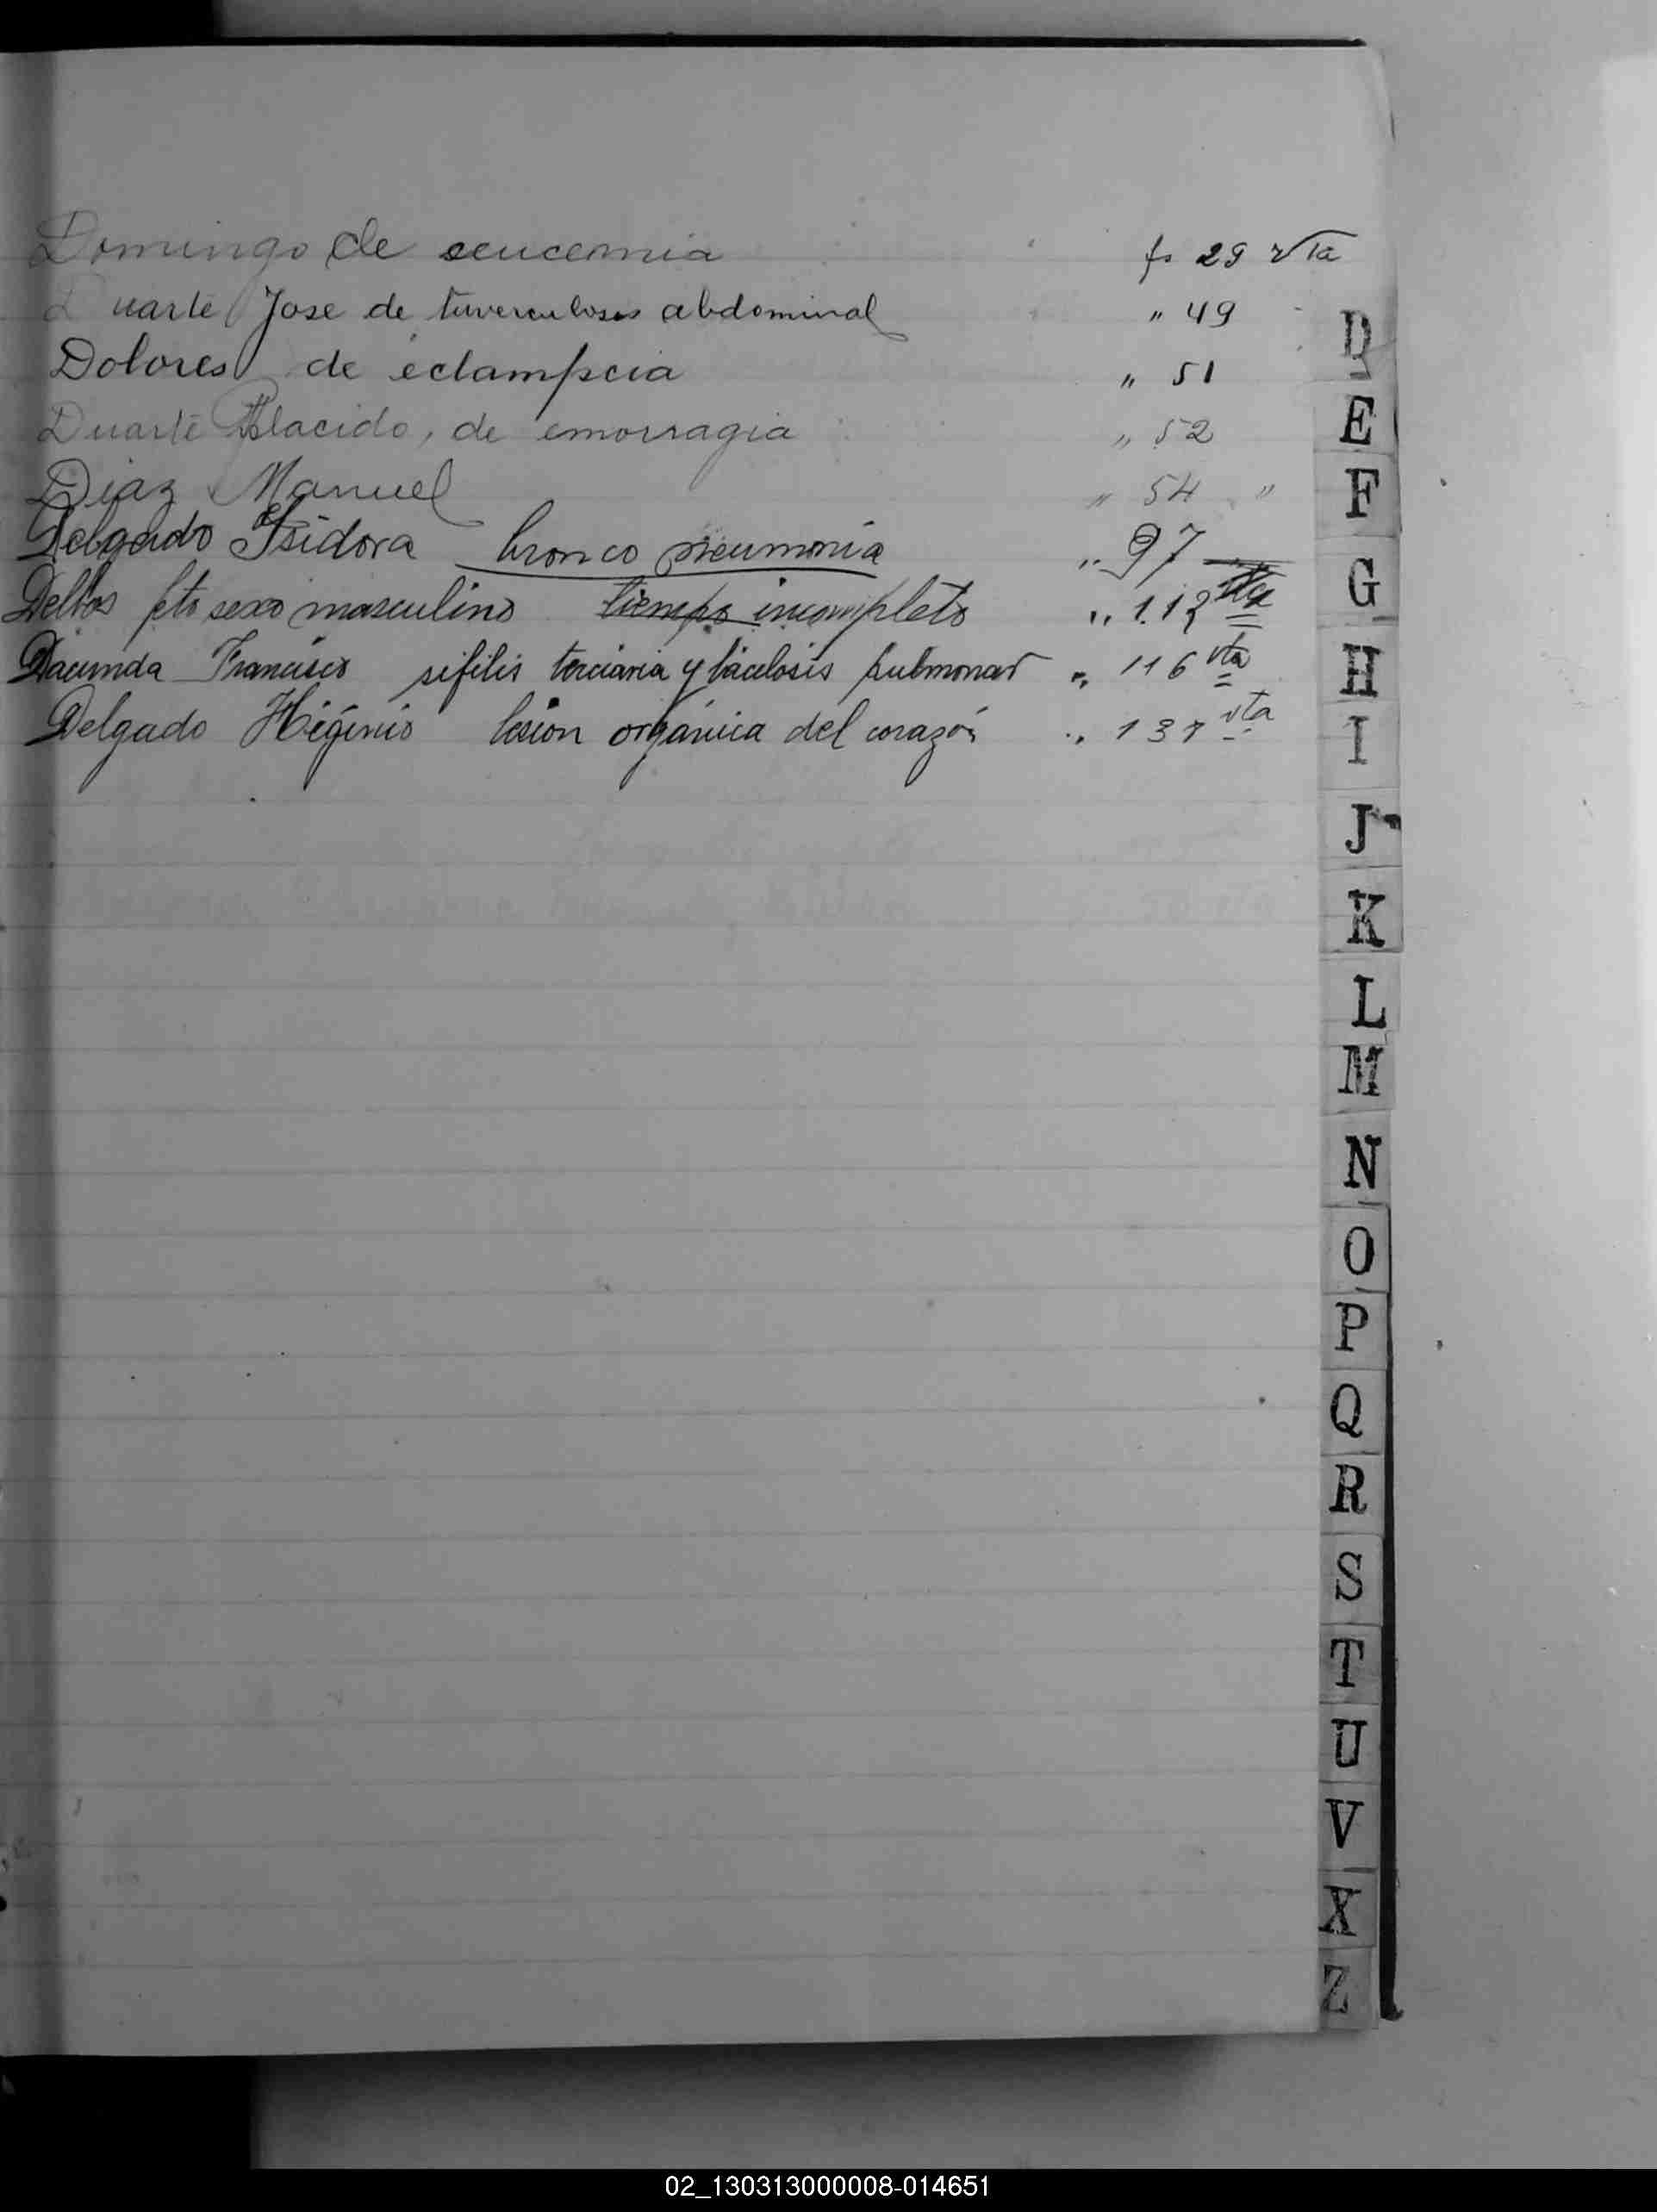 Domingo de seucemia fs 29 vta
Duarte Jose de tuverculosis abdominal " 49
Dolores de eclampcia " 51
Duarte Placido, de emorragia " 52
Diaz Manuel " 54 "
Delgado Isidora bronco pneumonia " 97
Delbos feto sexo masculino tiempo incompleto " 112 vta
Dacunda Francisco sifilis terciaria y bacilosis pulmonar " 116 vta
Delgado Higinio lesion orgánica del corazón " 137 vta
D
E
F
G
H
I
J
K
L
M
N
O
P
Q
R
S
T
U
V
X
Z
02_130313000008-014651